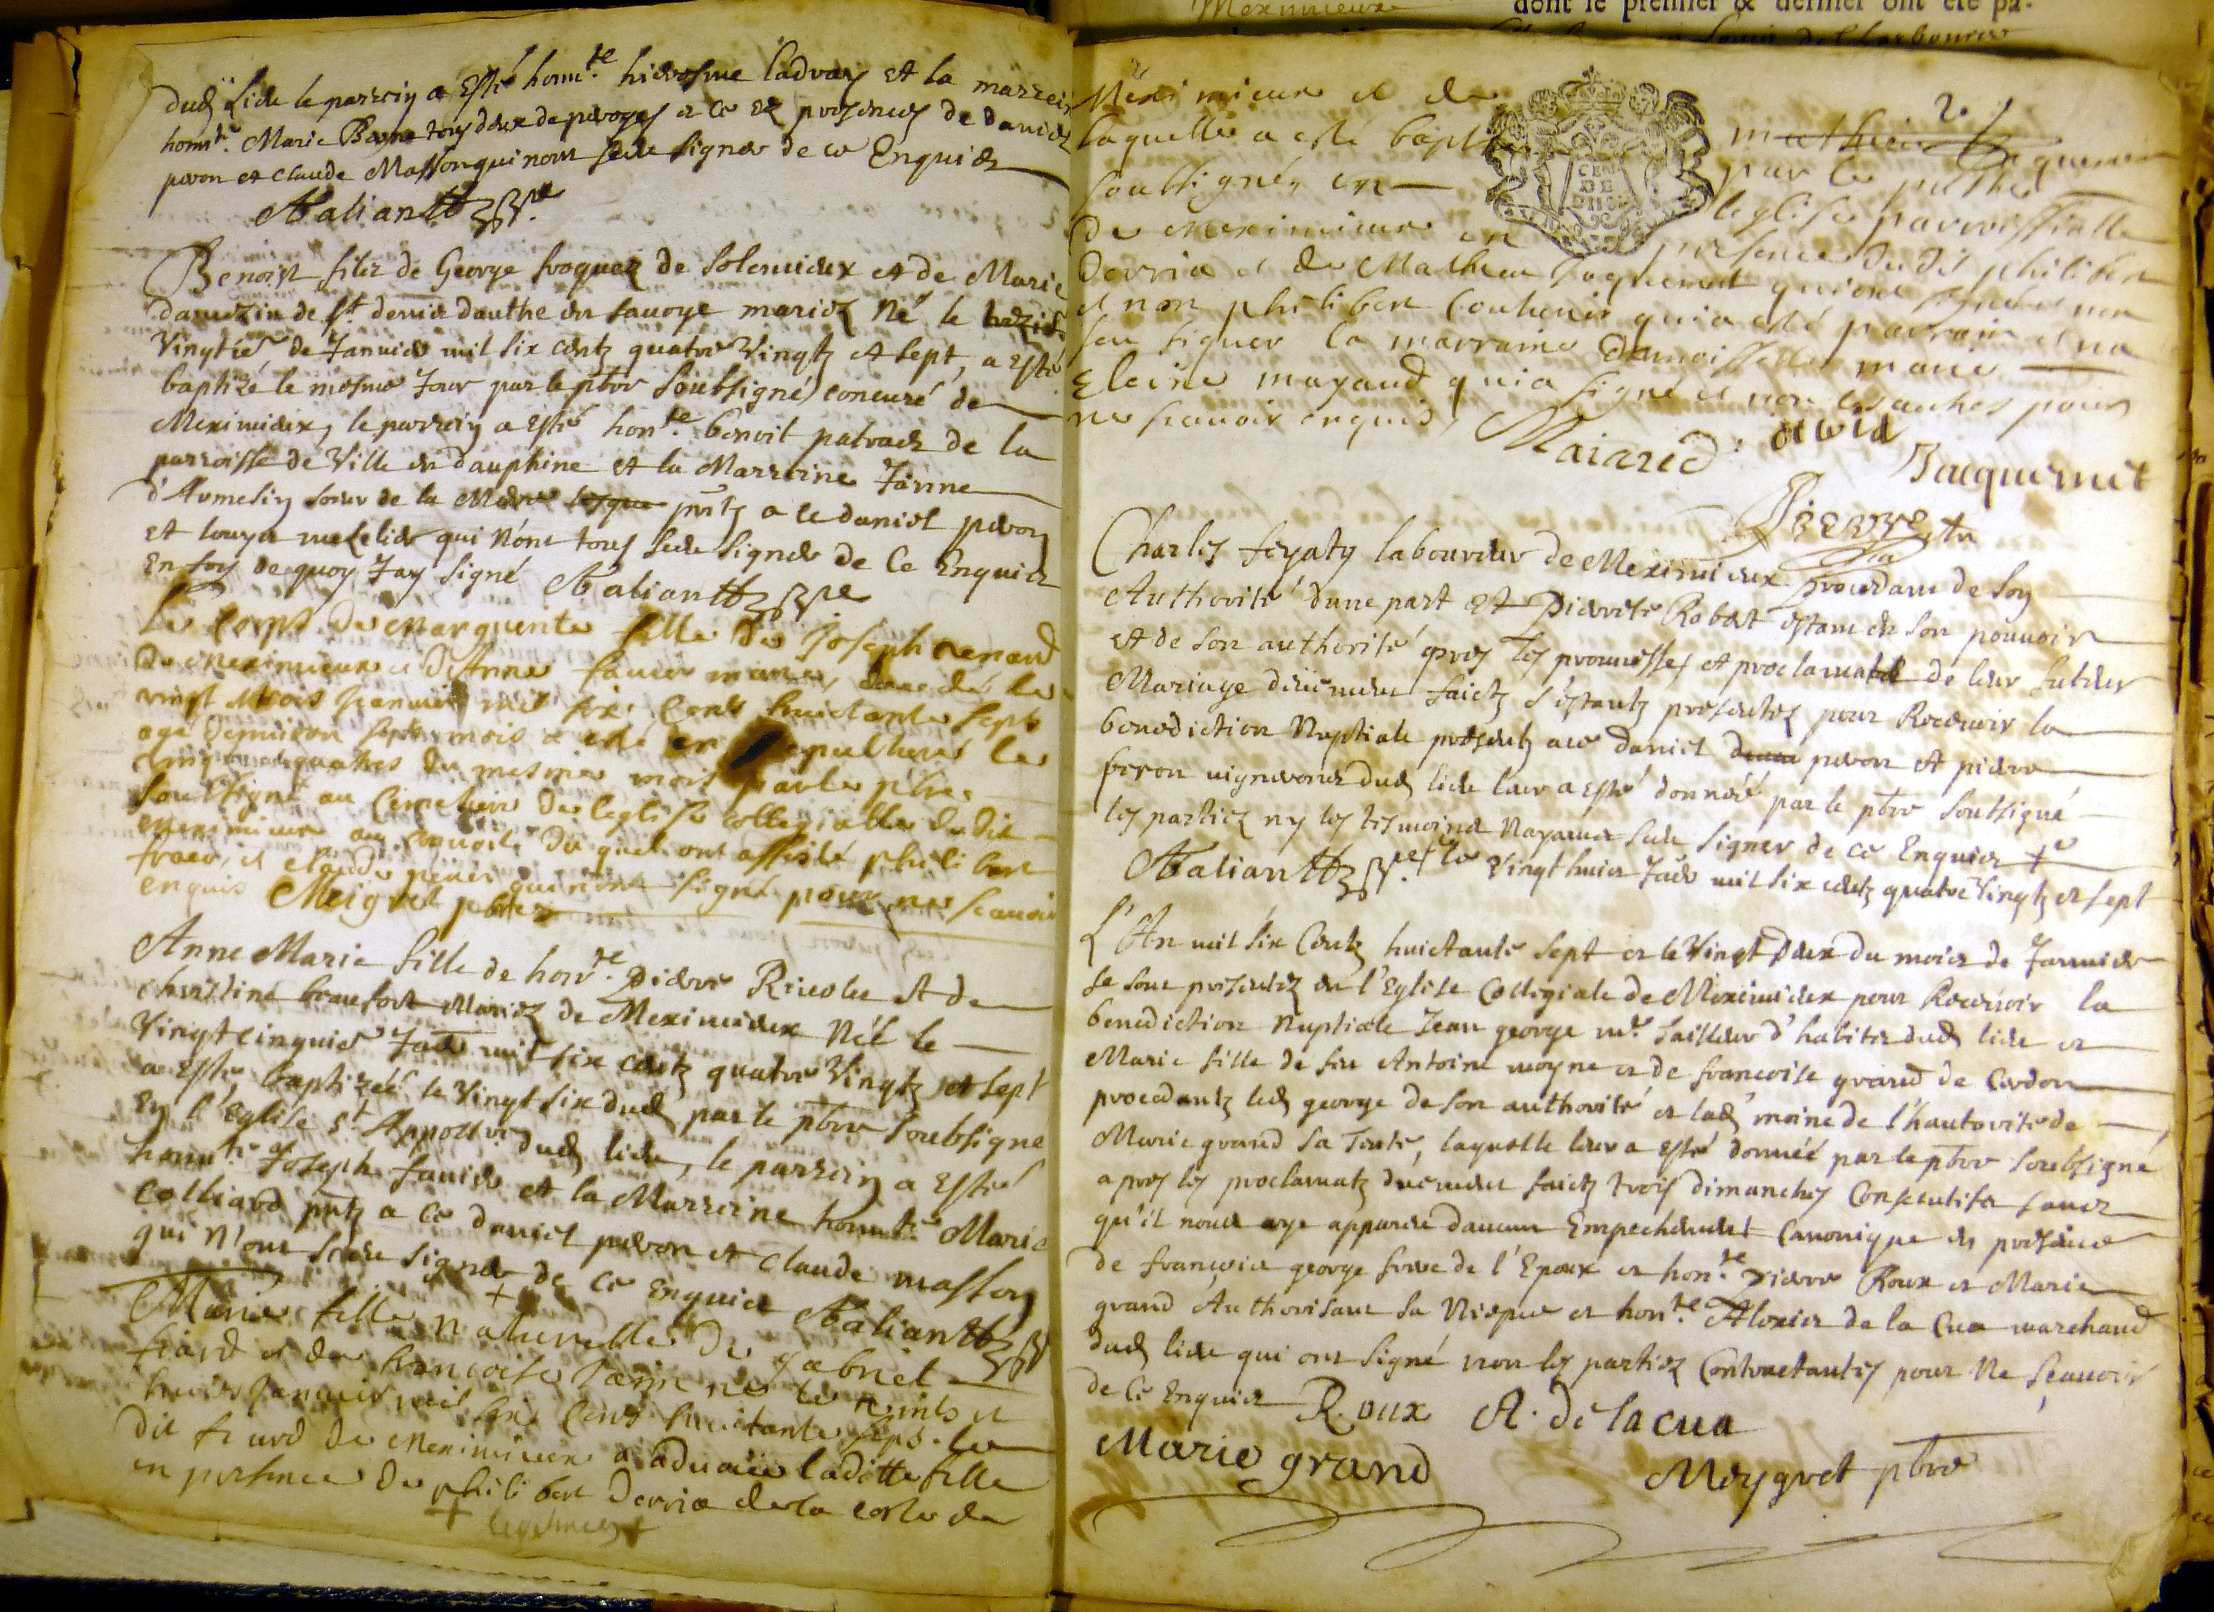 dud lieu le parrein a esté honn.te hierosme ladvay et la marrein
honn.te Marie tous deux de peroges et ce en presences de daniel
peron et claude Masson qui nont sceu signer de ce Enquis
Benoist filz de George froquez de solemieux et de Marie
damezin de st denis dauthe en savoye mariez Né le
vingt de Janvier mil six centz quatre vingtz et sept, a esté
baptizé le mesme Jour par le pbre soubsigné concuré de
Meximieux, le parrein a esté hon.te benoit de la
parroisse de Ville en dauphine et la Marreine Janne
d'Armesin soeur de la Mere pntz a ce daniel peron
et qui n'ont tous sceu signer de ce Enquis
En foy de quoy Jay signé
Le corps de marguerite fille de Joseph renaud
de meximieux et d'Anne favier maries decedé le
vingt trois Janvier mil six cents huictante sept
agé denviron sept mois a esté en sepulturé le
quatres du mesme mois par le pbre
soubsigné au cemetiere de leglise collegialle dudit
meximieux au convoit du quel ont assisté philibert
et claude qui n'ont signé pour ne scavoir
enquis Meigret pbre
Anne Marie fille de hon.te pierre Rivolet et de
christine beaufort Mariez de Meximieux Néé le
vingt cinquie Janv mil six centz quatre vingtz et sept
a esté baptizéé le vingt six dud par le pbre soubsigné
En l'Eglise st Appolinr dud lieu, le parrein a esté
honn.te Joseph favier et la Marreine honn.te Marie
colliard pntz a ce daniel peron et claude masson
qui n'ont sceu signer de ce Enquis
Marie fille naturelle de gabriel
fiard et de francoise né le vingt
huict Janvier mil six cent huictante sept. le
dit fiard de meximieux a advoüé laditte fille
en presence de philibert derria de la coste de
+
dont le premier & dernier ont été pa-
Meximieux et de
laquelle a esté baptisée par le pbre
soussigné en leglise parroissialle
de meximieux en presence dudit philibert
derria et de Mathieu Jaquemet qui ont signé
et non philibert qui a esté parrain
sceu signer la marraine damoiselle marie
Eleine mayaud qui a signé et non les autres pour
ne scavoir enquis
Jaquemet
Pierre
Charles feyaty laboureur de Meximieux procedant de son
Authorité dune part et pierrete Robert estant en son pouvoir
et de son authorité apres les promesses et proclamatz de leur futeur
Mariage düement faictz s'estantz presentez pour Recevoir la
benediction Nuptiale presentz a ce daniel peron et pierre
peron vignerons dud lieu leur a esté donnéé par le pbre soussigné
les parties ny les tesmoins Nayant sceu signer de ce Enquis +
+ le vingt huict Janv mil six centz quatre vingtz et sept
L'An mil six Centz huictante sept et le vingt deux du mois de Janvier
se sont presentez en l'Eglise Collegiale de Meximieux pour Recevoir la
benediction Nuptiale Jean george m.e tailleur d'habits dud lieu et
Marie fille de feu Antoine moyne et de francoise grand de Cordon
procedantz led george de son authorité et lad moine de l'hautorité de
Marie grand sa Tante, laquelle leur a esté donnéé par le pbre soubsigné
apres les proclamatz düement faictz trois dimanches Consecutifs sans
qu'il nous aye apparu daucun Empechement Canonique en presence
de francois george frere de l'Epoux et hon.te pierre Roux et Marie
grand Authorisant sa Niepce et hon.te Alexis de la Cua marchand
dud lieu qui ont signé non les parties Contractantes pour Ne scavoir
de ce Enquis Roux A. de la cua
Marie grand Meygret pbre